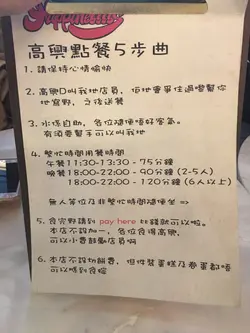 高興點餐5步曲
1. 請保持心情愉快
2. 高興D叫我地店員，佢地會爭住過嚟幫你
地寫野，之後送餐
3. 水係自助，各位隨便唔好客氣。
有須要幫手可以叫我地
4. 繁忙時間用餐時間
午餐11:30-13:30 - 75分鐘
晚餐18:00-22:00 - 90分鐘 (2-5人)
18:00-22:00 - 120分鐘 (6人以上)
無人等位及非繁忙時間隨便坐 =>
5. 食完野請到 pay here 比錢就可以啦。
本店不設加一，各位食得高興，
可以小費鼓勵店員啊
6. 本店不設切餅費，但性蛋糕及卷蛋都唔
可以喺到食㗎